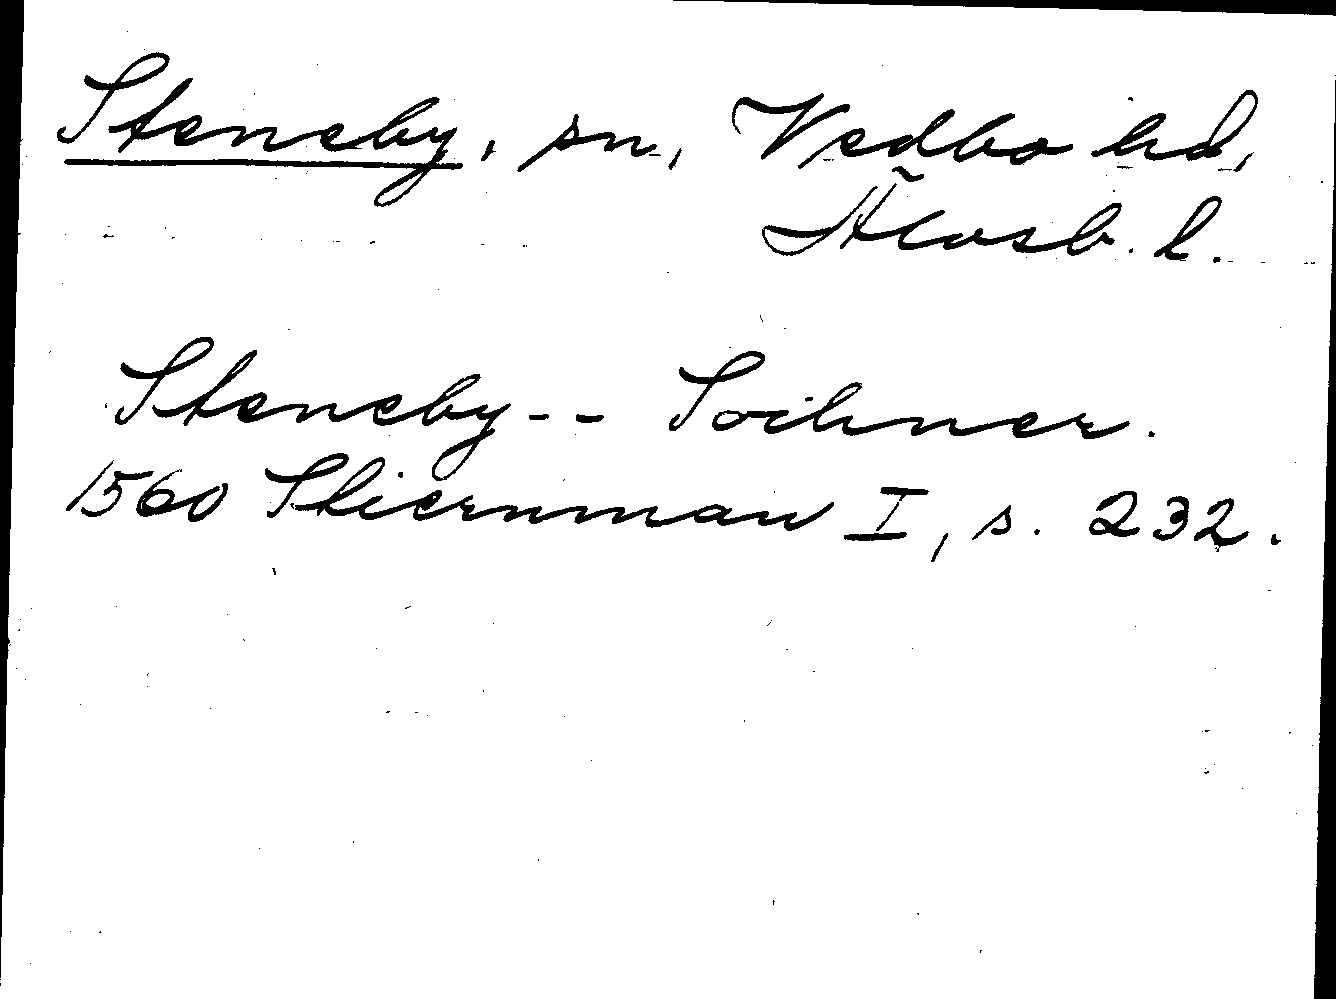 Steneby, sn, Vedbo hd,
Älvsb. l.
Steneby -- Sochner.
1560 Stiernman I, s. 232.